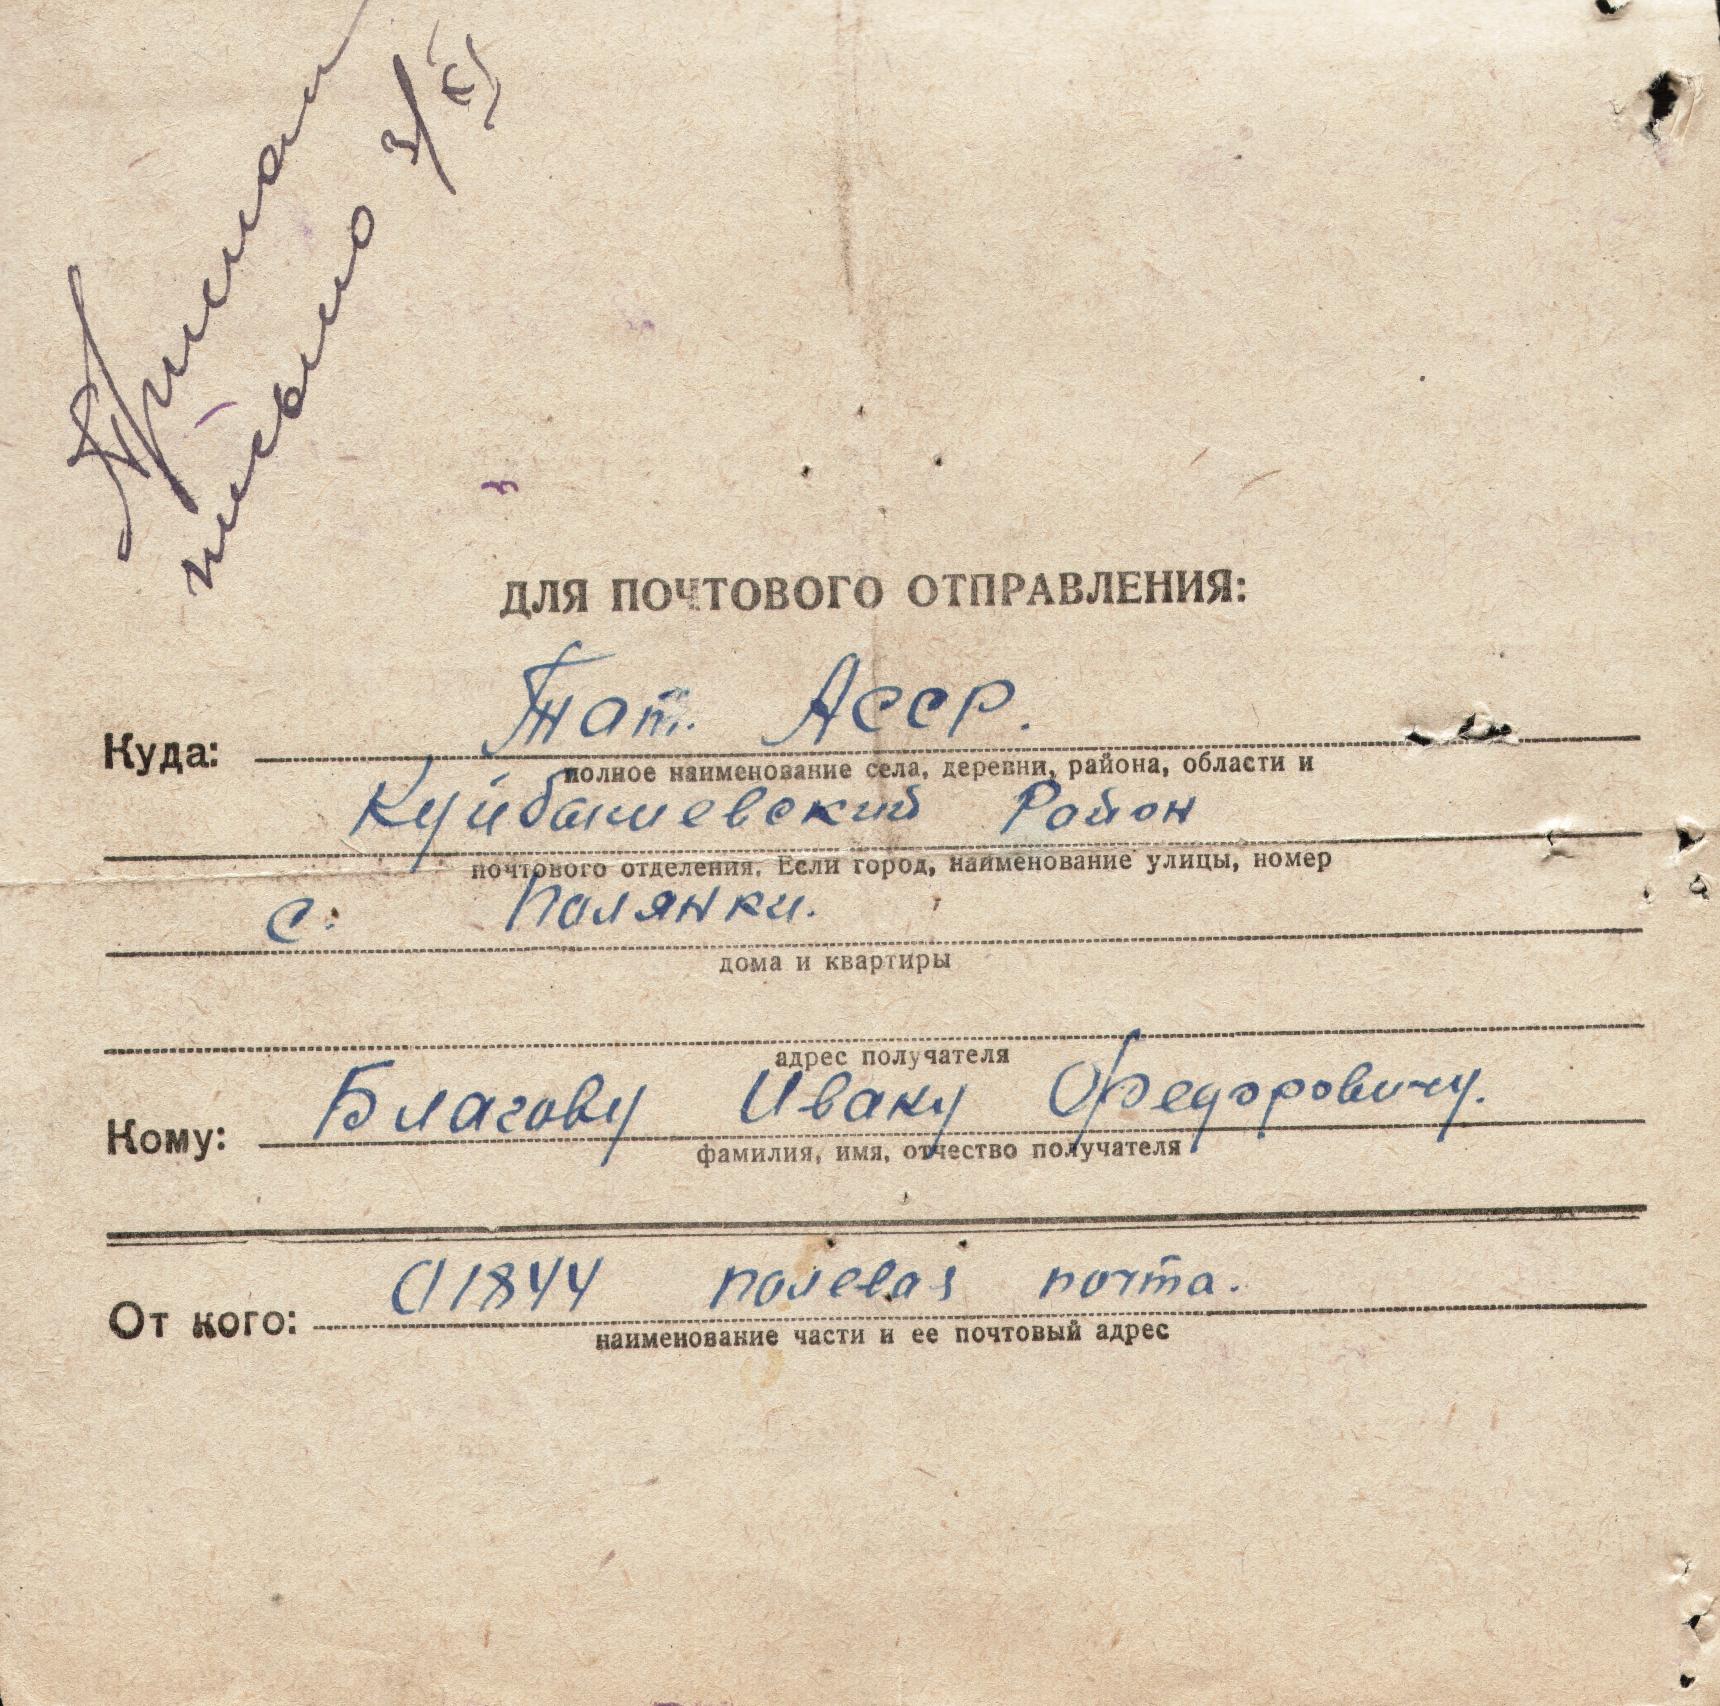 Прислан
письмо 3/XI
ДЛЯ ПОЧТОВОГО ОТПРАВЛЕНИЯ:
Куда: Тат. АССР.
полное наименование села, деревни, района, области и
Куйбышевский Район
почтового отделения. Если город, наименование улицы, номер
с. Полянки.
дома и квартиры
адрес получателя
Кому: Благову Ивану Федоровичу.
фамилия, имя, отчество получателя
От кого: 01844 полевая почта.
наименование части и ее почтовый адрес